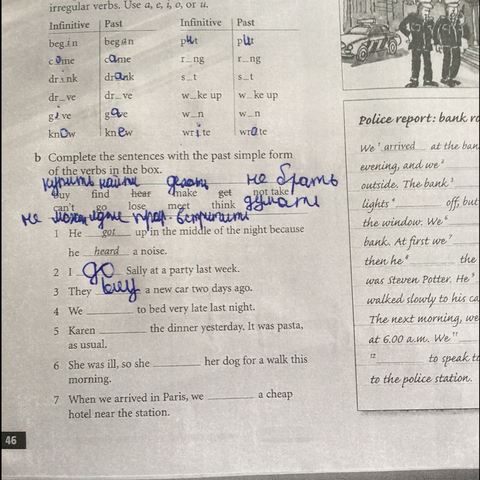 irregular verbs. Use a, e, i, o, or u.
Infinitive Past Infinitive Past
begin began put put
come came r_ng r_ng
drink drank s_t s_t
dr_ve dr_ve w_ke up w_ke up
give gave w_n w_n
know knew write wrote
b Complete the sentences with the past simple form
of the verbs in the box.
купить найти делать не брать
buy find hear make get not take
can't go lose meet think думать
не встретить
1 He got up in the middle of the night because
he heard a noise.
2 I go Sally at a party last week.
3 They buy a new car two days ago.
4 We ________ to bed very late last night.
5 Karen ________ the dinner yesterday. It was pasta,
as usual.
6 She was ill, so she ________ her dog for a walk this
morning.
7 When we arrived in Paris, we ________ a cheap
hotel near the station.
46
Police report: bank ro
We ¹ arrived at the ban
evening, and we ²
outside. The bank ³
lights ⁴ off, but
the window. We ⁶
bank. At first we ⁷
then he ⁸ the
was Steven Potter. He ⁹
walked slowly to his ca
The next morning, we
at 6.00 a.m. We ¹¹
¹² to speak to
to the police station.